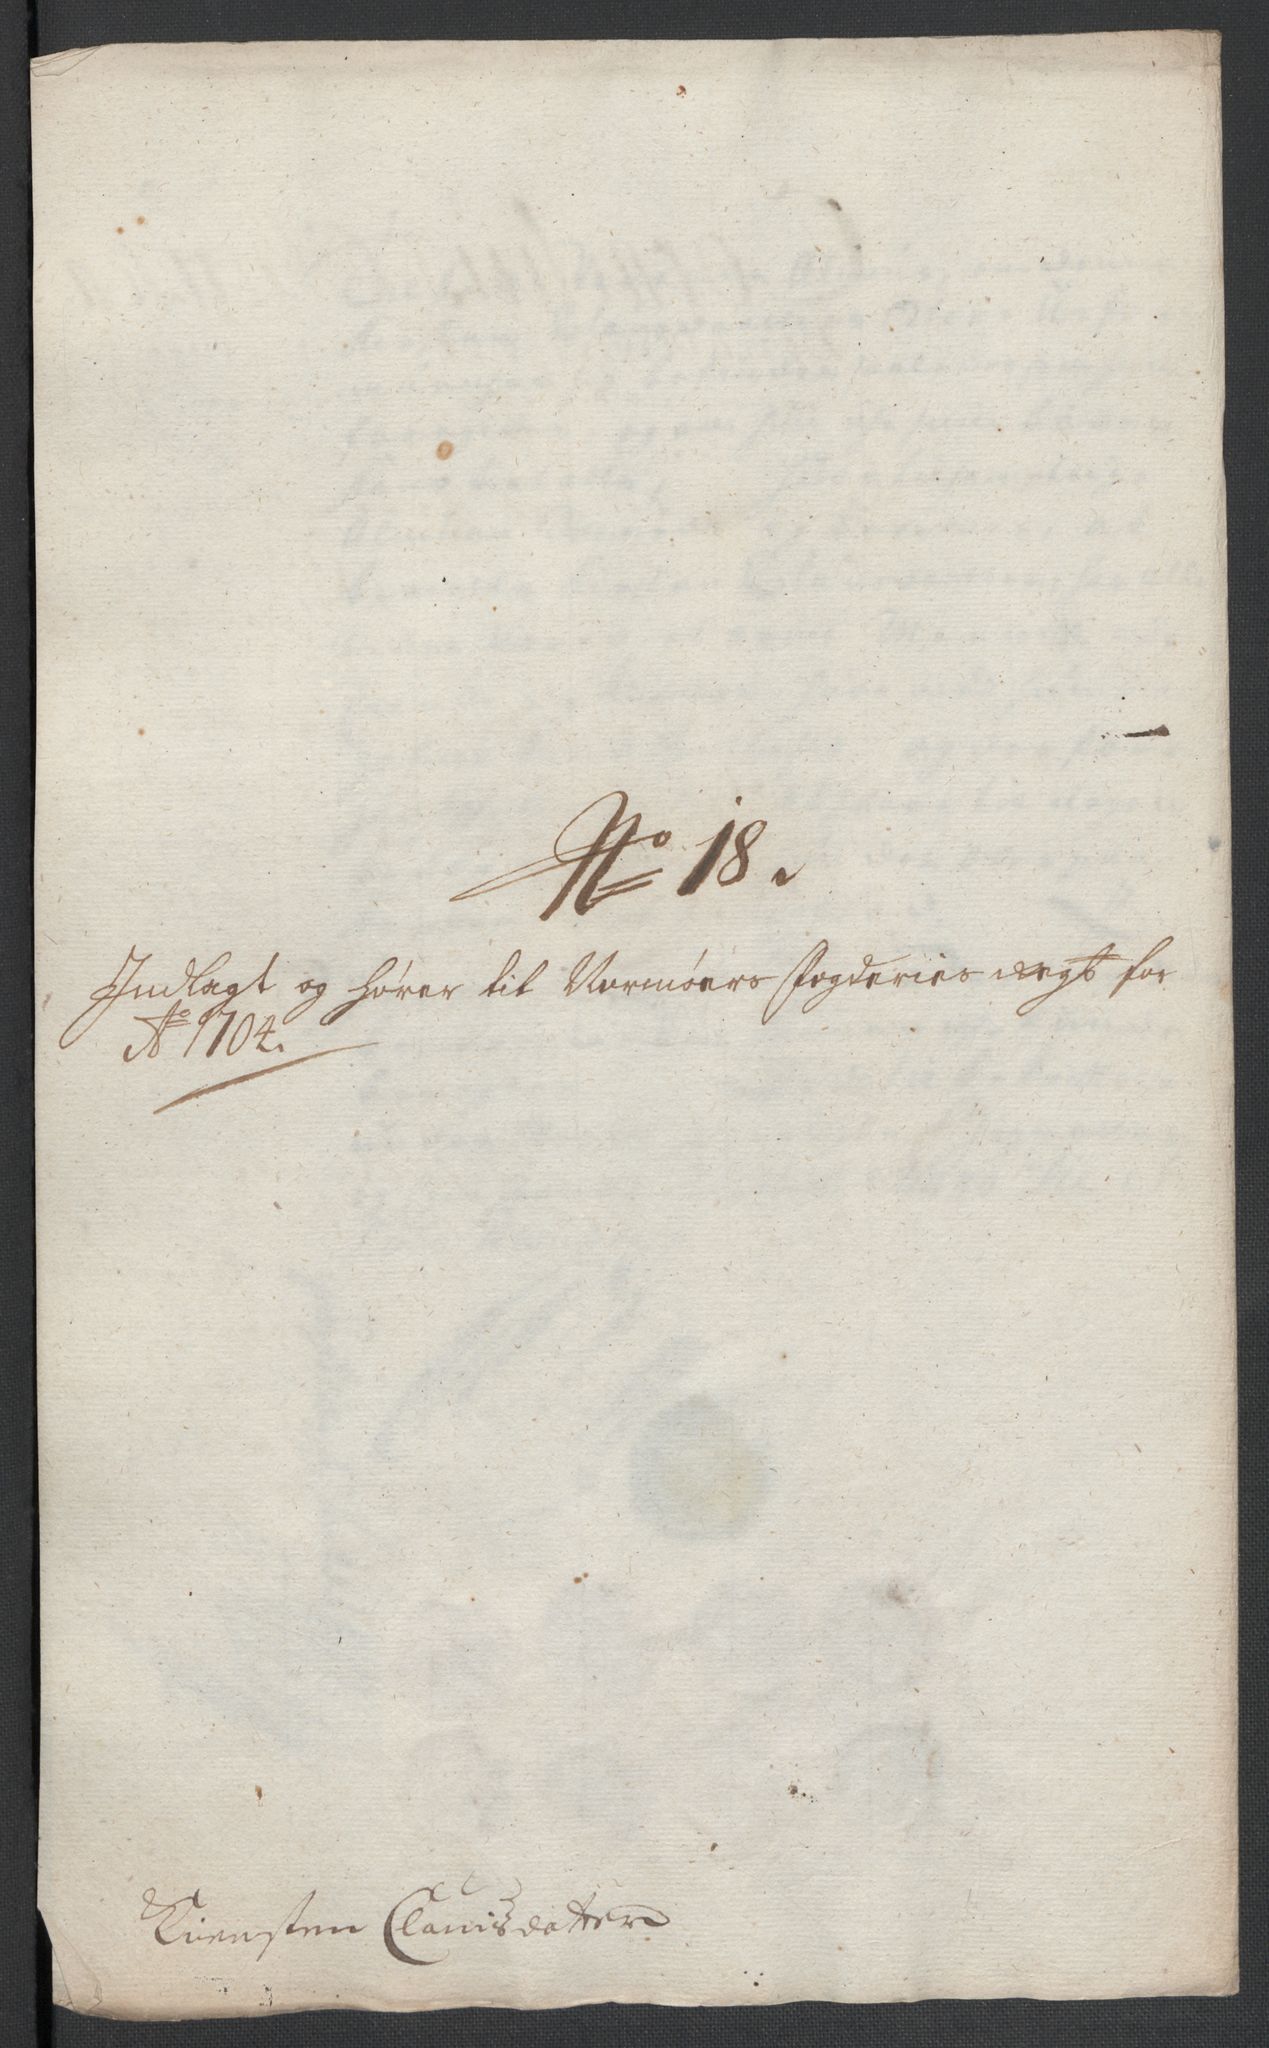 No 18.
Indlagt og hører til Normøers fogderies regsb for
Ao 1704.
Kiersten Clauisdatter